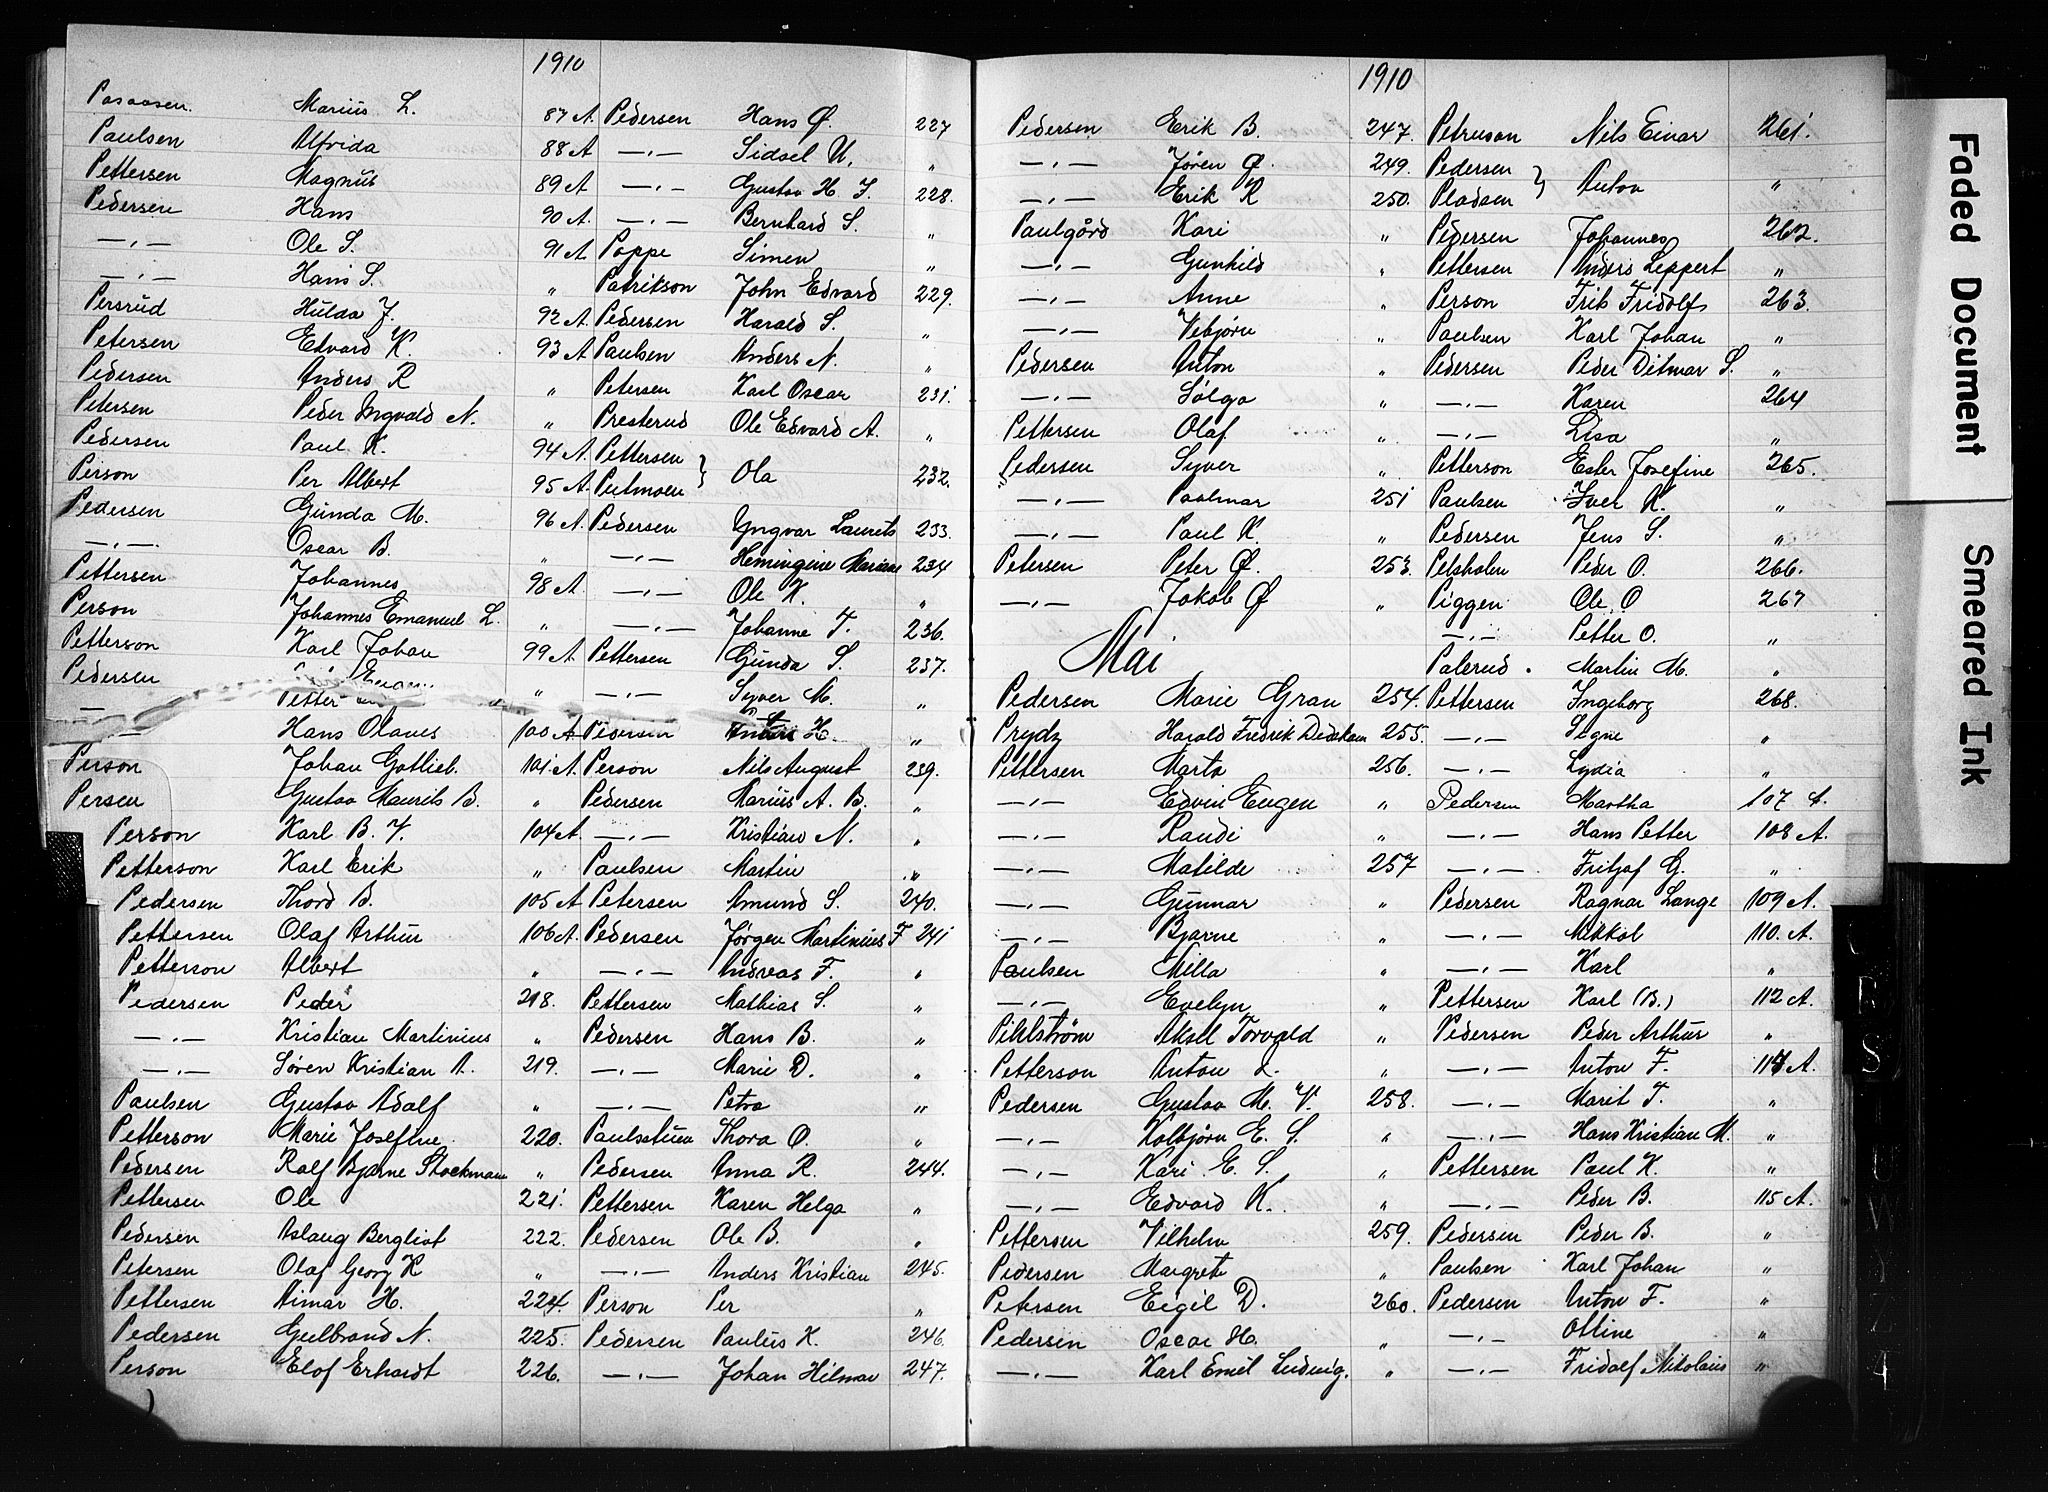 1910
Pasaasen. Marius L. 87 A.
Paulsen Alfrida 88 A
Pettersen Magnus 89 A
Pedersen Hans 90 A.
—„— Ole S. 91 A
—„— Hans S. „
Persrud Hulda J. 92 A.
Petersen Edvard K. 93 A
Pedersen Anders R „
Petersen Peder Ingvald N. „
Pedersen Paul K. 94 A.
Person Per Albert 95 A.
Pedersen Gunda M. 96 A.
—„— Oscar B. „
Pettersen Johannes 98 A
Person Johannes Emanuel L. „
Petterson Karl Johan 99 A
Pedersen „
— Petter
Hans Olaves 100 A
Person Johan Gotlieb. 101 A.
Persen Gustav Maurits B. „
Person Karl B. V. 104 A.
Petterson Karl Erik „
Pedersen Thord B. 105 A
Pettersen Olaf Arthur 106 A.
Petterson Albert „
Pedersen Peder 218.
—„— Kristian Martinius „
—„— Søren Kristian A. 219.
Paulsen Gustav Adolf „
Petterson Marie Josefine. 220.
Pedersen Rolf Bjarne Stockmann „
Pettersen Ole 221.
Pedersen Aslaug Bergliot 222.
Petersen Olaf Georg K „
Pettersen Aimar H. 224.
Pedersen Gulbrand N. 225.
Person Elof Erhardt 226.
Pedersen Hans Ø. 227
—„— Sidsel U. „
—„— Gustav H. J. 228.
—„— Bernhard S. „
Poppe Simen „
Patrikson John Edvard 229.
Pedersen Harald S. „
Paulsen Anders N. „
Petersen Karl Oscar 231.
Presterud Ole Edvard A. „
Pettersen } Ola 232.
Putmoen
Pedersen Yngvar Laurits 233.
—„— Hemingine Mariane 234
—„— Ole K. „
—„— Johanne T. 236.
Pettersen Gunda S. 237.
—„— Syver M. „
Pedersen H. „
Person Nils August 239.
Pedersen Marius A. B. „
—„— Kristian N. „
Paulsen Martin „
Petersen Amund S. 240.
Pedersen Jørgen Martinius F 241
—„— Andreas F. „
Pettersen Mathias S. „
Pedersen Hans B. „
—„— Marie D. „
—„— Petra „
Paulsstuen Thora O. „
Pedersen Anna R. 244.
Pettersen Karen Helga „
Pedersen Ole B. „
—„— Anders Kristian 245.
Person Per „
Pedersen Paulus K. 246.
—„— Johan Hilmar 247.
1910
Pedersen Erik B. 247.
—„— Jøren Ø. 249.
—„— Erik K 250.
Paulgård Kari „
—„— Gunhild „
—„— Anne „
—„— Vebjørn „
Pedersen Anton „
—„— Sølga „
Pettersen Olaf „
Pedersen Syver „
—„— Paalmar 251
—„— Paul K. „
Petersen Peter Ø. 253.
—„— Jakob Ø „
Mai
Pedersen Marie Gran 254.
Prydz Harald Fredrik 255.
Pettersen Marta 256.
—„— Edvin Eugen „
—„— Randi „
—„— Matilde 257
—„— Gunnar „
—„— Bjarne „
Paulsen Milla „
—„— Evelyn „
Pihlstrøm Aksel Torvald „
Petterson Anton L. „
Pedersen Gustav M. V. 258.
—„— Kolbjørn E. S. „
—„— Kari E. S. „
—„— Edvard K. „
Pettersen Vilhelm 259.
Pedersen Margrete „
Petersen Eigil D. 260.
Pedersen Oscar H. „
—„— Karl Emil Ludvig. „
Petruson Nils Einar 261.
Pedersen } Anton „
Pladsen
Pedersen Johannes 262.
Pettersen Anders Leppert „
Person Frik Fridolf 263.
Paulsen Karl Johan „
Pedersen Peder Ditmar S. „
—„— Karen 264
—„— Lisa „
Petterson Ester Josefine 265.
Paulsen Iver K. „
Pedersen Jens S. „
Petsholen Peder O. 266.
Piggen Ole O 267
—„— Petter O. „
Palerud. Martin M. „
Pettersen Ingeborg 268.
—„— Signe „
—„— Lydia „
Pedersen Martha 107 A.
—„— Hans Petter 108 A.
—„— Fritjof G. „
Pedersen Ragnar Lange 109 A.
—„— Mikkel 110. A.
—„— Karl „
Pettersen Karl (B.) 112 A.
Pedersen Peder Arthur „
—„— Anton F. 114 A.
—„— Marit T. „
—„— Hans Kristian M. „
Pettersen Paul K. „
—„— Peder B. 115 A.
Pedersen Peder B. „
Paulsen Karl Johan „
Pedersen Anton F. „
—„— Ottine „
—„— Fridolf Nikolaus „
Faded Document
Smeared Ink